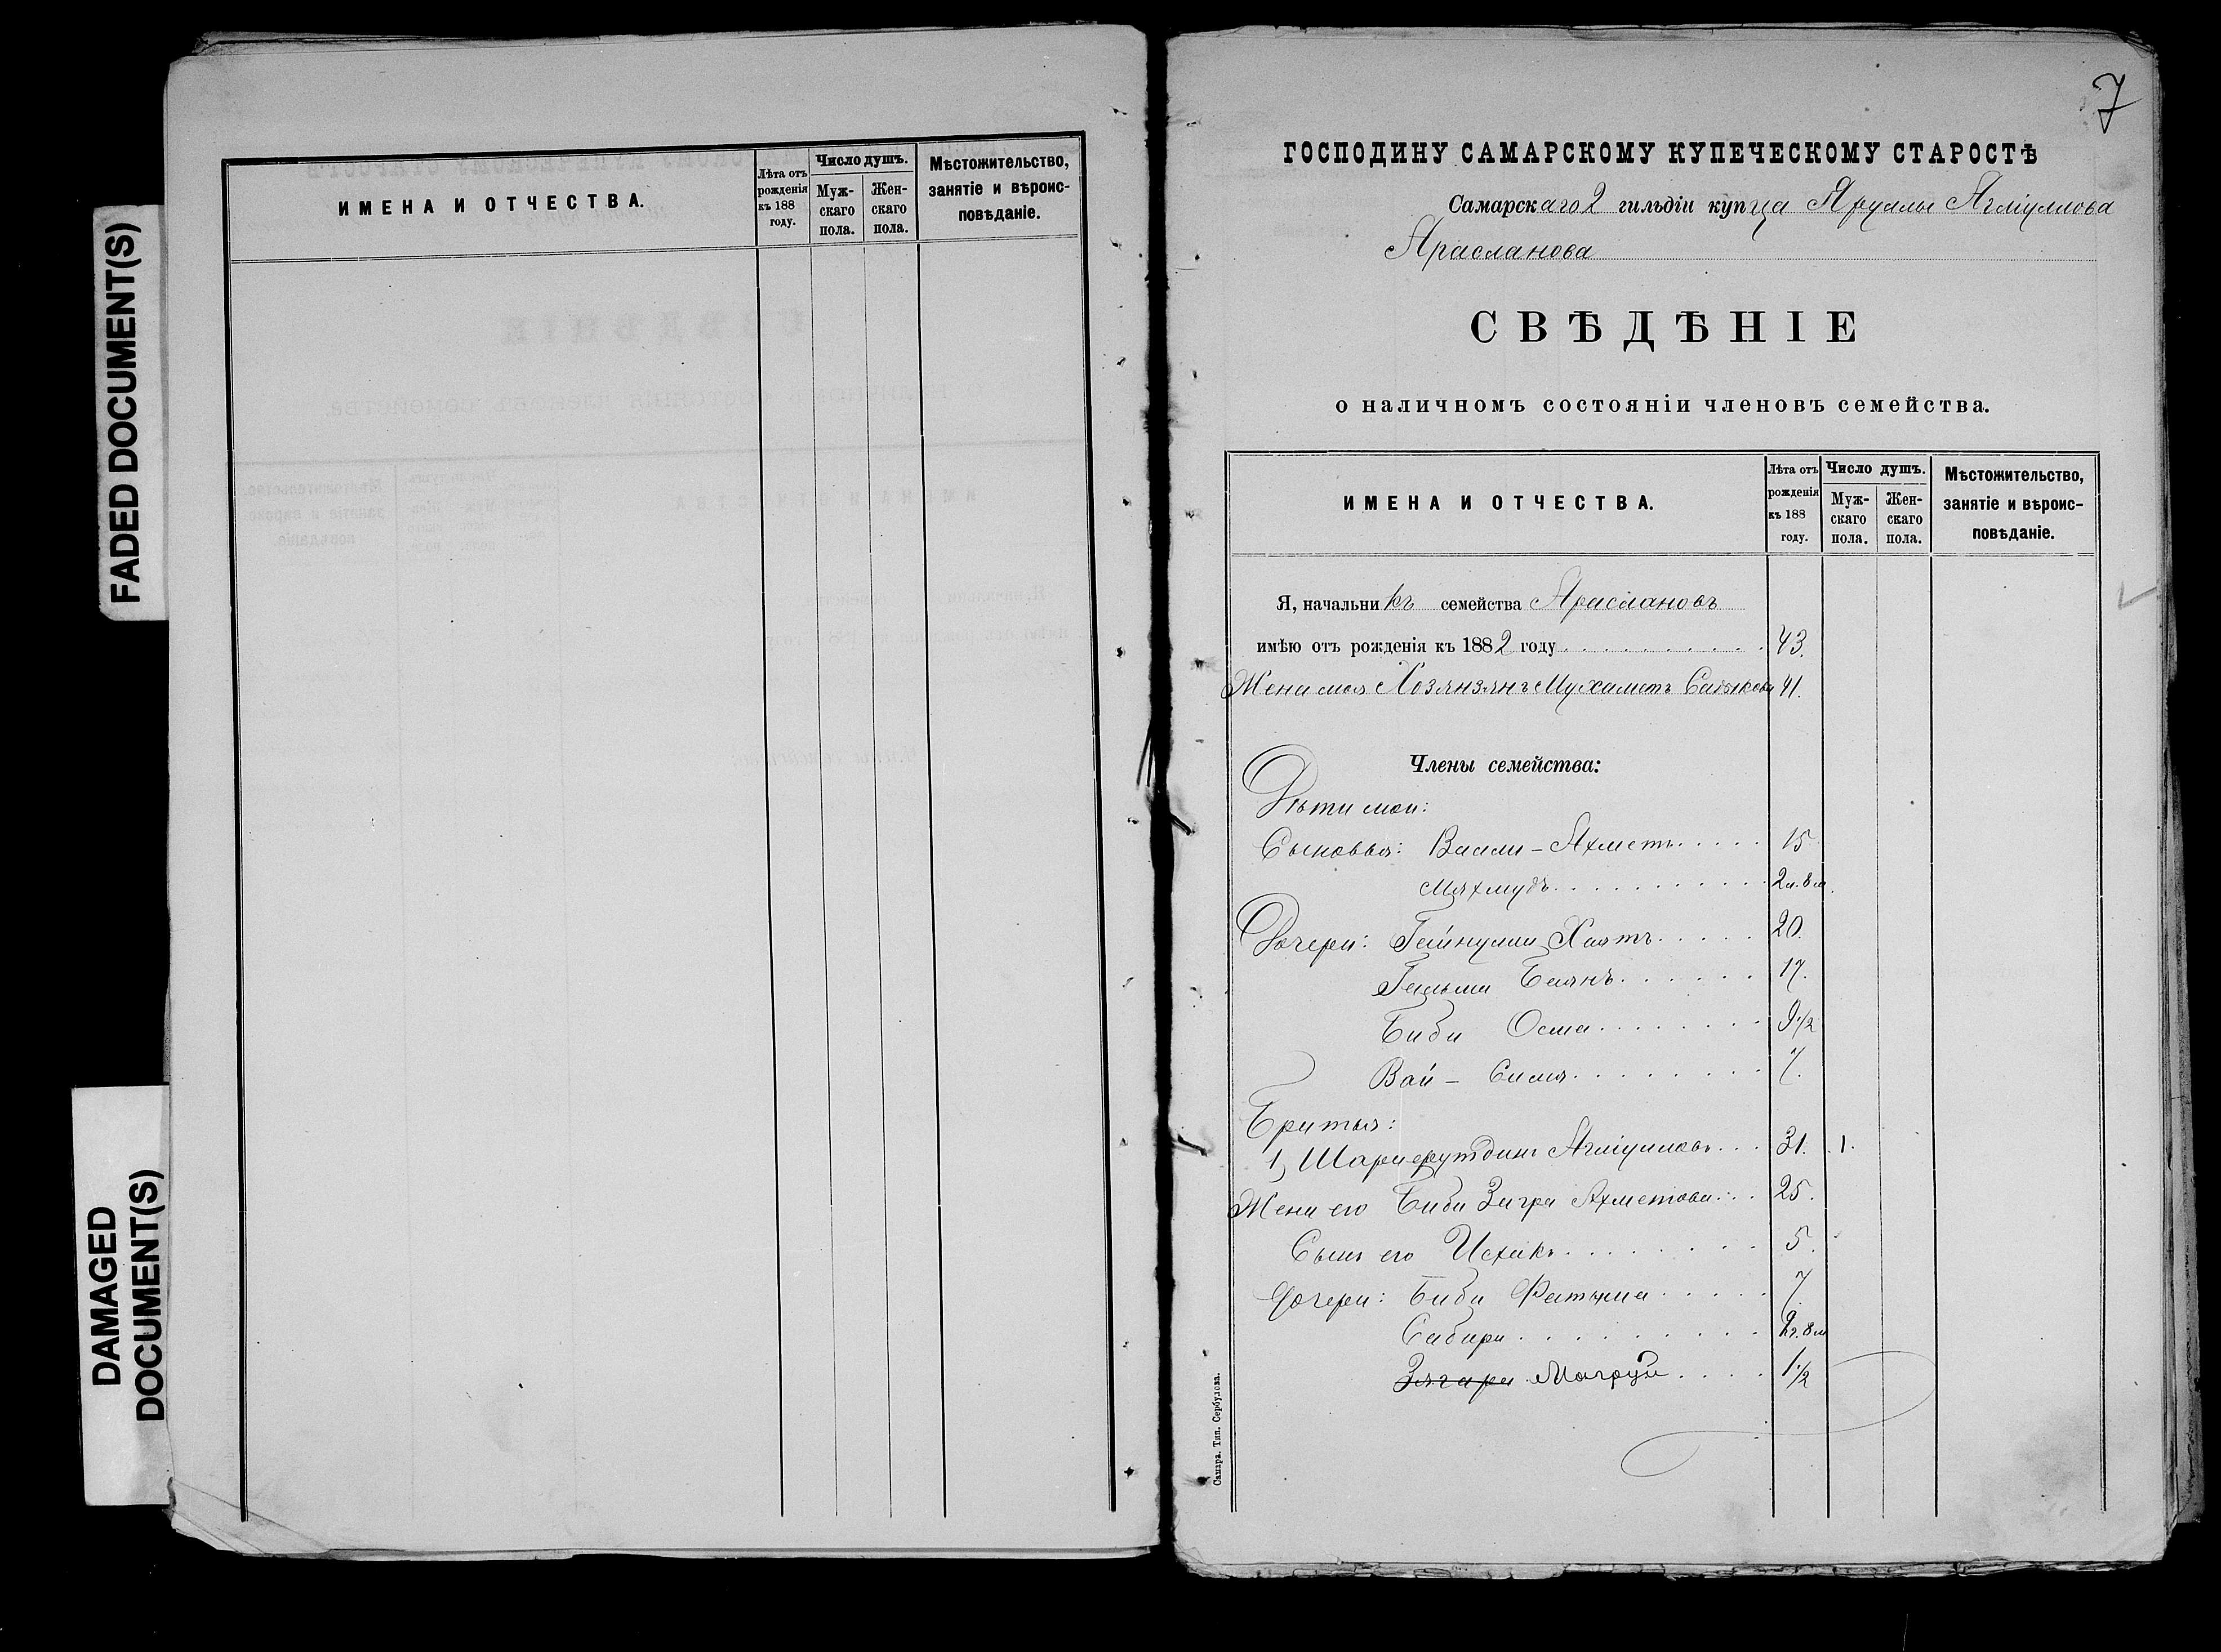 FADED DOCUMENT(S)
DAMAGED
DOCUMENT(S)
ИМЕНА И ОТЧЕСТВА.
Лѣта отъ
рожденія
къ 188
году.
Число душъ.
Муж-
скаго
пола.
Жен-
скаго
пола.
Мѣстожительство,
занятіе и вѣроис-
повѣданіе.
7
ГОСПОДИНУ САМАРСКОМУ КУПЕЧЕСКОМУ СТАРОСТѢ
Самарскаго 2 гильдіи купца Яруллы Агліуллова
Арасланова
СВѢДѢНІЕ
о наличномъ состояніи членовъ семейства.
ИМЕНА И ОТЧЕСТВА.
Лѣта отъ
рожденія
къ 188
году.
Число душъ.
Муж-
скаго
пола.
Жен-
скаго
пола.
Мѣстожительство,
занятіе и вѣроис-
повѣданіе.
Я, начальникъ семейства Араслановъ
имѣю отъ рожденія къ 1882 году 43.
Жена моя Хозянзянъ Мухаметъ Садыкова 41.
Члены семейства:
Дѣти мои:
Сыновья: Ваали-Ахметъ 15
Мяхмудъ 2 г. 8 м.
Дочери: Гайнулли Хаятъ 20.
Гальма Баянъ 17.
Биби Осма 9 1/2
Вай - Силя 7.
Братья:
1, Шарифутдинъ Агліулловъ 31. 1.
Жена его Биби Загра Ахметова 25.
Сынъ его Исхакъ 5.
Дочери: Биби Фатыма 7
Сабира 2 г. 8 м
Зягара Магруй 1 1/2
Самара. Тип. Сербулова.